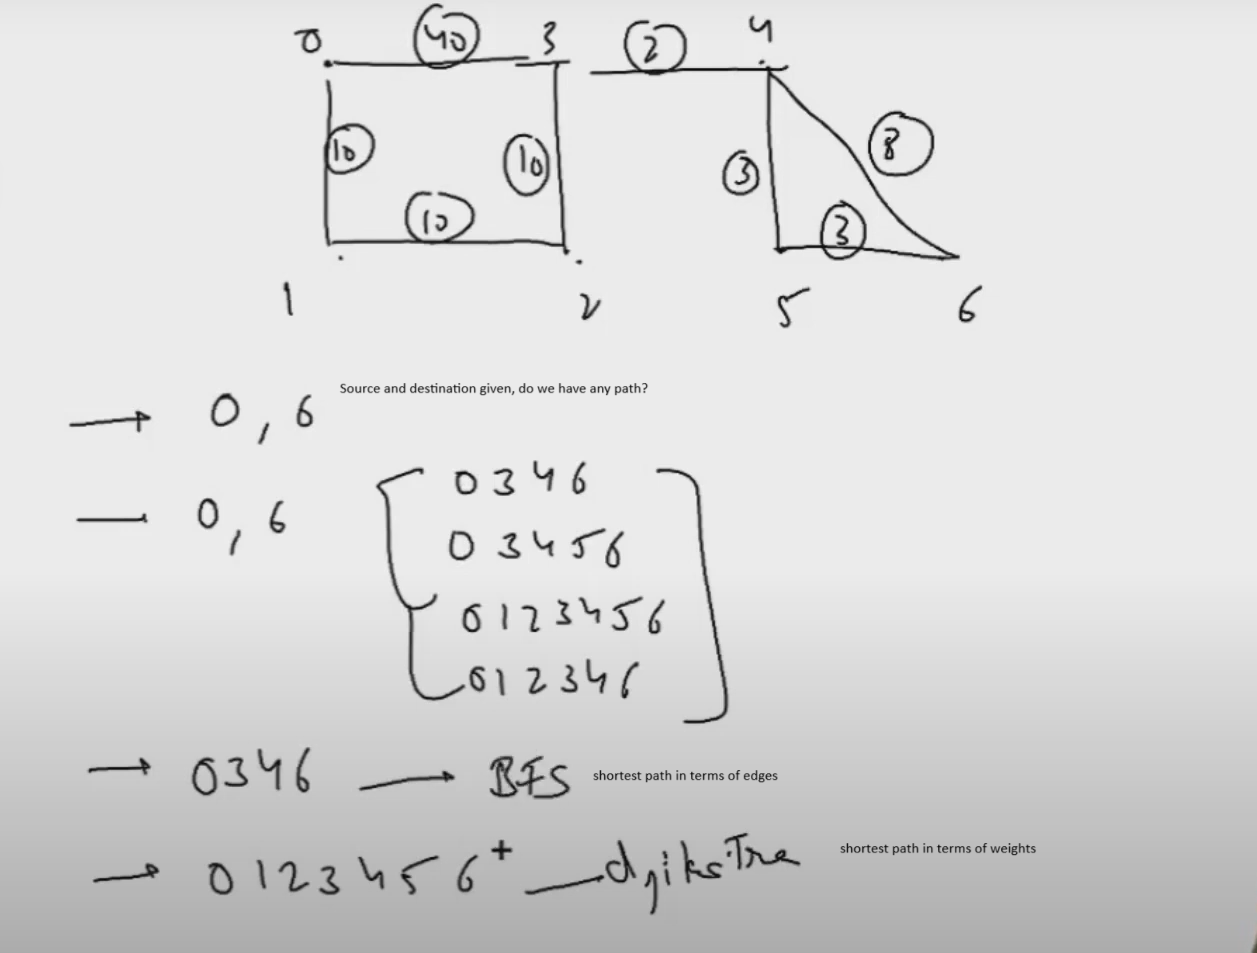 0 40 3 2 4
10 10 3 8
10 3
1 2 5 6
0, 6 Source and destination given, do we have any path?
0, 6
0 3 4 6
0 3 4 5 6
0 1 2 3 4 5 6
0 1 2 3 4 6
0346 BFS shortest path in terms of edges
0 1 2 3 4 5 6 + djiksTra shortest path in terms of weights